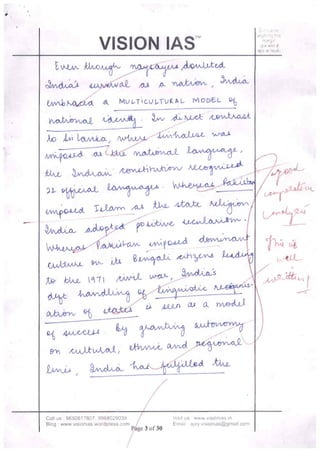 VISION IAS™
Even though naysayers doubted
India's survival as a nation, India
embraced a MULTICULTURAL MODEL of
national identity. In direct contrast
to Sri Lanka, where Sinhalese was
imposed as the national language,
the Indian constitution recognised
22 official languages. Whereas Pakistan
imposed Islam as the state religion,
India adopted positive secularism.
Whereas Pakistan imposed dominant
culture on its Bengali citizens leading
to the 1971 civil war, India's
deft handling of linguistic reorganis-
ation of states is seen as a model
of success. By granting autonomy
on cultural, ethnic and regional
lines, India has fulfilled the
good
comparative
analysis
This is
well
written!
Call us : 9650617807, 9968029039
Visit us : www.visionias.in
Blog : www.visionias.wordpress.com
Page 3 of 30
Email : ajay.visionias@gmail.com